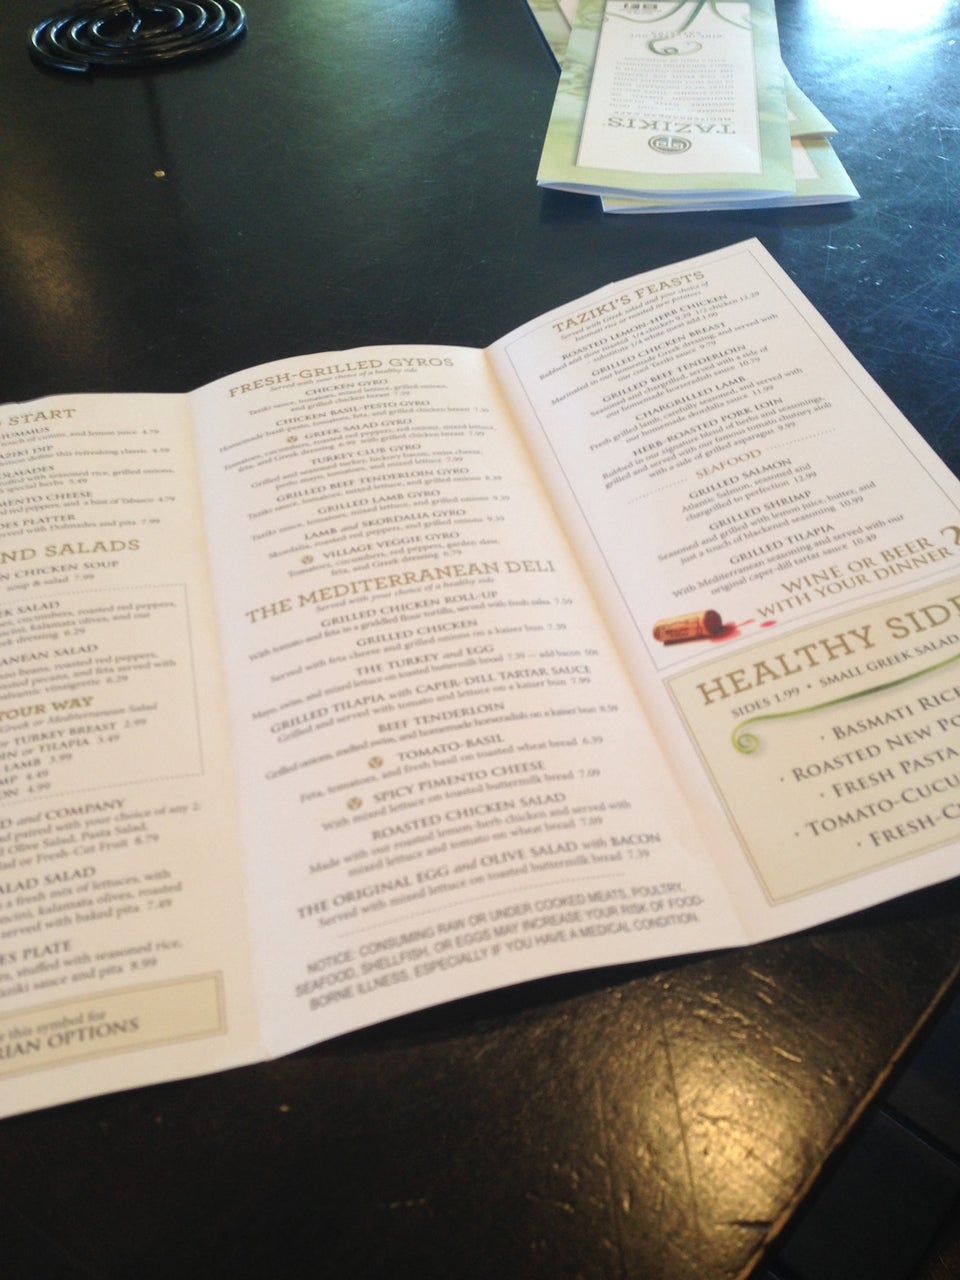 TAZIKI'S
MEDITERRANEAN CAFE
START
HUMMUS
touch of cumin, and lemon juice 4.79
TAZIKI DIP
this refreshing classic 4.59
stuffed with seasoned rice, grilled onions,
special herbs 5.49
PIMENTO CHEESE
red peppers, and a hint of Tabasco 4.79
PLATTER
served with Dolmades and pita 7.99
AND SALADS
CHICKEN SOUP
soup & salad 7.99
GREEK SALAD
cucumbers, roasted red peppers,
kalamata olives, and our
Greek dressing 6.29
SALAD
roasted red peppers,
roasted pecans, and feta served with
balsamic vinaigrette 6.29
YOUR WAY
Greek or Mediterranean Salad
or TURKEY BREAST 2.99
or TILAPIA 3.49
LAMB 3.99
4.49
4.99
and COMPANY
paired with your choice of any 2:
Olive Salad, Pasta Salad,
Salad or Fresh-Cut Fruit 8.79
SALAD SALAD
a fresh mix of lettuces, with
kalamata olives, roasted
served with baked pita 7.49
PLATE
stuffed with seasoned rice,
Taziki sauce and pita 8.99
this symbol for
OPTIONS
FRESH-GRILLED GYROS
Served with your choice of a healthy side
CHICKEN GYRO
Taziki sauce, tomatoes, mixed lettuce, grilled onions,
and grilled chicken breast 7.39
CHICKEN BASIL-PESTO GYRO
Homemade basil-pesto, tomatoes, feta, and grilled chicken breast 7.39
GREEK SALAD GYRO
Tomatoes, cucumbers, roasted red peppers, red onions, mixed lettuce,
feta, and Greek dressing 6.99 with grilled chicken 7.99
TURKEY CLUB GYRO
Grilled and seasoned turkey, hickory bacon, swiss cheese,
mayo, tomatoes, and mixed lettuce 7.99
GRILLED BEEF TENDERLOIN GYRO
Taziki sauce, tomatoes, mixed lettuce, and grilled onions 8.39
GRILLED LAMB GYRO
Taziki sauce, tomatoes, mixed lettuce, and grilled onions 9.39
LAMB and SKORDALIA GYRO
Skordalia, roasted red peppers, and grilled onions 9.39
VILLAGE VEGGIE GYRO
Tomatoes, cucumbers, red peppers, garden slaw,
feta, and Greek dressing 6.79
THE MEDITERRANEAN DELI
Served with your choice of a healthy side
GRILLED CHICKEN ROLL-UP
With tomato and feta in a griddled flour tortilla, served with fresh salsa 7.59
GRILLED CHICKEN
Served with feta cheese and grilled onions on a kaiser bun 7.39
THE TURKEY and EGG
Mayo, swiss, and mixed lettuce on toasted buttermilk bread 7.39 — add bacon 50¢
GRILLED TILAPIA with CAPER-DILL TARTAR SAUCE
Grilled and served with tomato and lettuce on a kaiser bun 7.99
BEEF TENDERLOIN
Grilled onions, melted swiss, and homemade horseradish on a kaiser bun 8.59
TOMATO-BASIL
Feta, tomatoes, and fresh basil on toasted wheat bread 6.39
SPICY PIMENTO CHEESE
With mixed lettuce on toasted buttermilk bread 7.09
ROASTED CHICKEN SALAD
Made with our roasted lemon-herb chicken and served with
mixed lettuce and tomato on wheat bread 7.09
THE ORIGINAL EGG and OLIVE SALAD with BACON
Served with mixed lettuce on toasted buttermilk bread 7.39
NOTICE: CONSUMING RAW OR UNDER COOKED MEATS, POULTRY,
SEAFOOD, SHELLFISH, OR EGGS MAY INCREASE YOUR RISK OF FOOD-
BORNE ILLNESS, ESPECIALLY IF YOU HAVE A MEDICAL CONDITION.
TAZIKI'S FEASTS
Served with Greek salad and your choice of
basmati rice or roasted new potatoes
ROASTED LEMON-HERB CHICKEN
Rubbed and slow roasted 1/4 chicken 9.29 1/2 chicken 12.29
substitute 1/4 white meat add 1.00
GRILLED CHICKEN BREAST
Marinated in our homemade Greek dressing, and served with
our cool Taziki sauce 9.79
GRILLED BEEF TENDERLOIN
Seasoned and chargrilled, served with a side of
our homemade horseradish sauce 10.79
CHARGRILLED LAMB
Fresh grilled lamb, carefully seasoned, and served with
our homemade skordalia sauce 11.99
HERB-ROASTED PORK LOIN
Rubbed in our signature blend of herbs and seasonings,
grilled and served with our famous tomato chutney aioli
with a side of grilled asparagus 9.99
SEAFOOD
GRILLED SALMON
Atlantic Salmon, seasoned and
chargrilled to perfection 12.99
GRILLED SHRIMP
Seasoned and grilled with lemon juice, butter, and
just a touch of blackened seasoning 10.99
GRILLED TILAPIA
With Mediterranean seasoning and served with our
original caper-dill tartar sauce 10.49
WINE OR BEER
WITH YOUR DINNER?
HEALTHY SIDE
SIDES 1.99 • SMALL GREEK SALAD
· BASMATI RICE
· ROASTED NEW PO
· FRESH PASTA
· TOMATO-CUCU
· FRESH-C